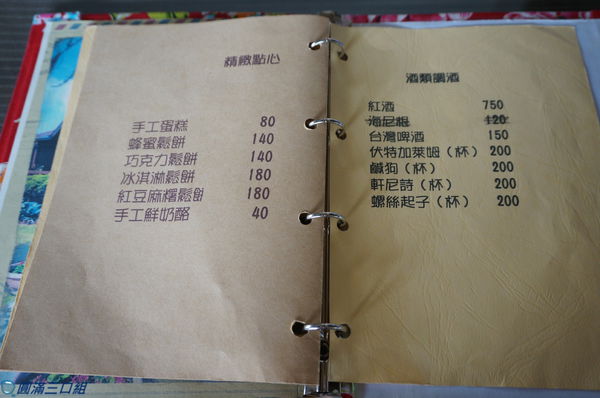 精緻點心
手工蛋糕 80
蜂蜜鬆餅 140
巧克力鬆餅 140
冰淇淋鬆餅 180
紅豆麻糬鬆餅 180
手工鮮奶酪 40
酒類調酒
紅酒 750
海尼根 120
台灣啤酒 150
伏特加萊姆（杯） 200
鹹狗（杯） 200
軒尼詩（杯） 200
螺絲起子（杯） 200
圓滿三口組